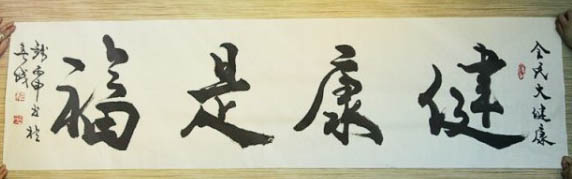 全民大健康
健康是福